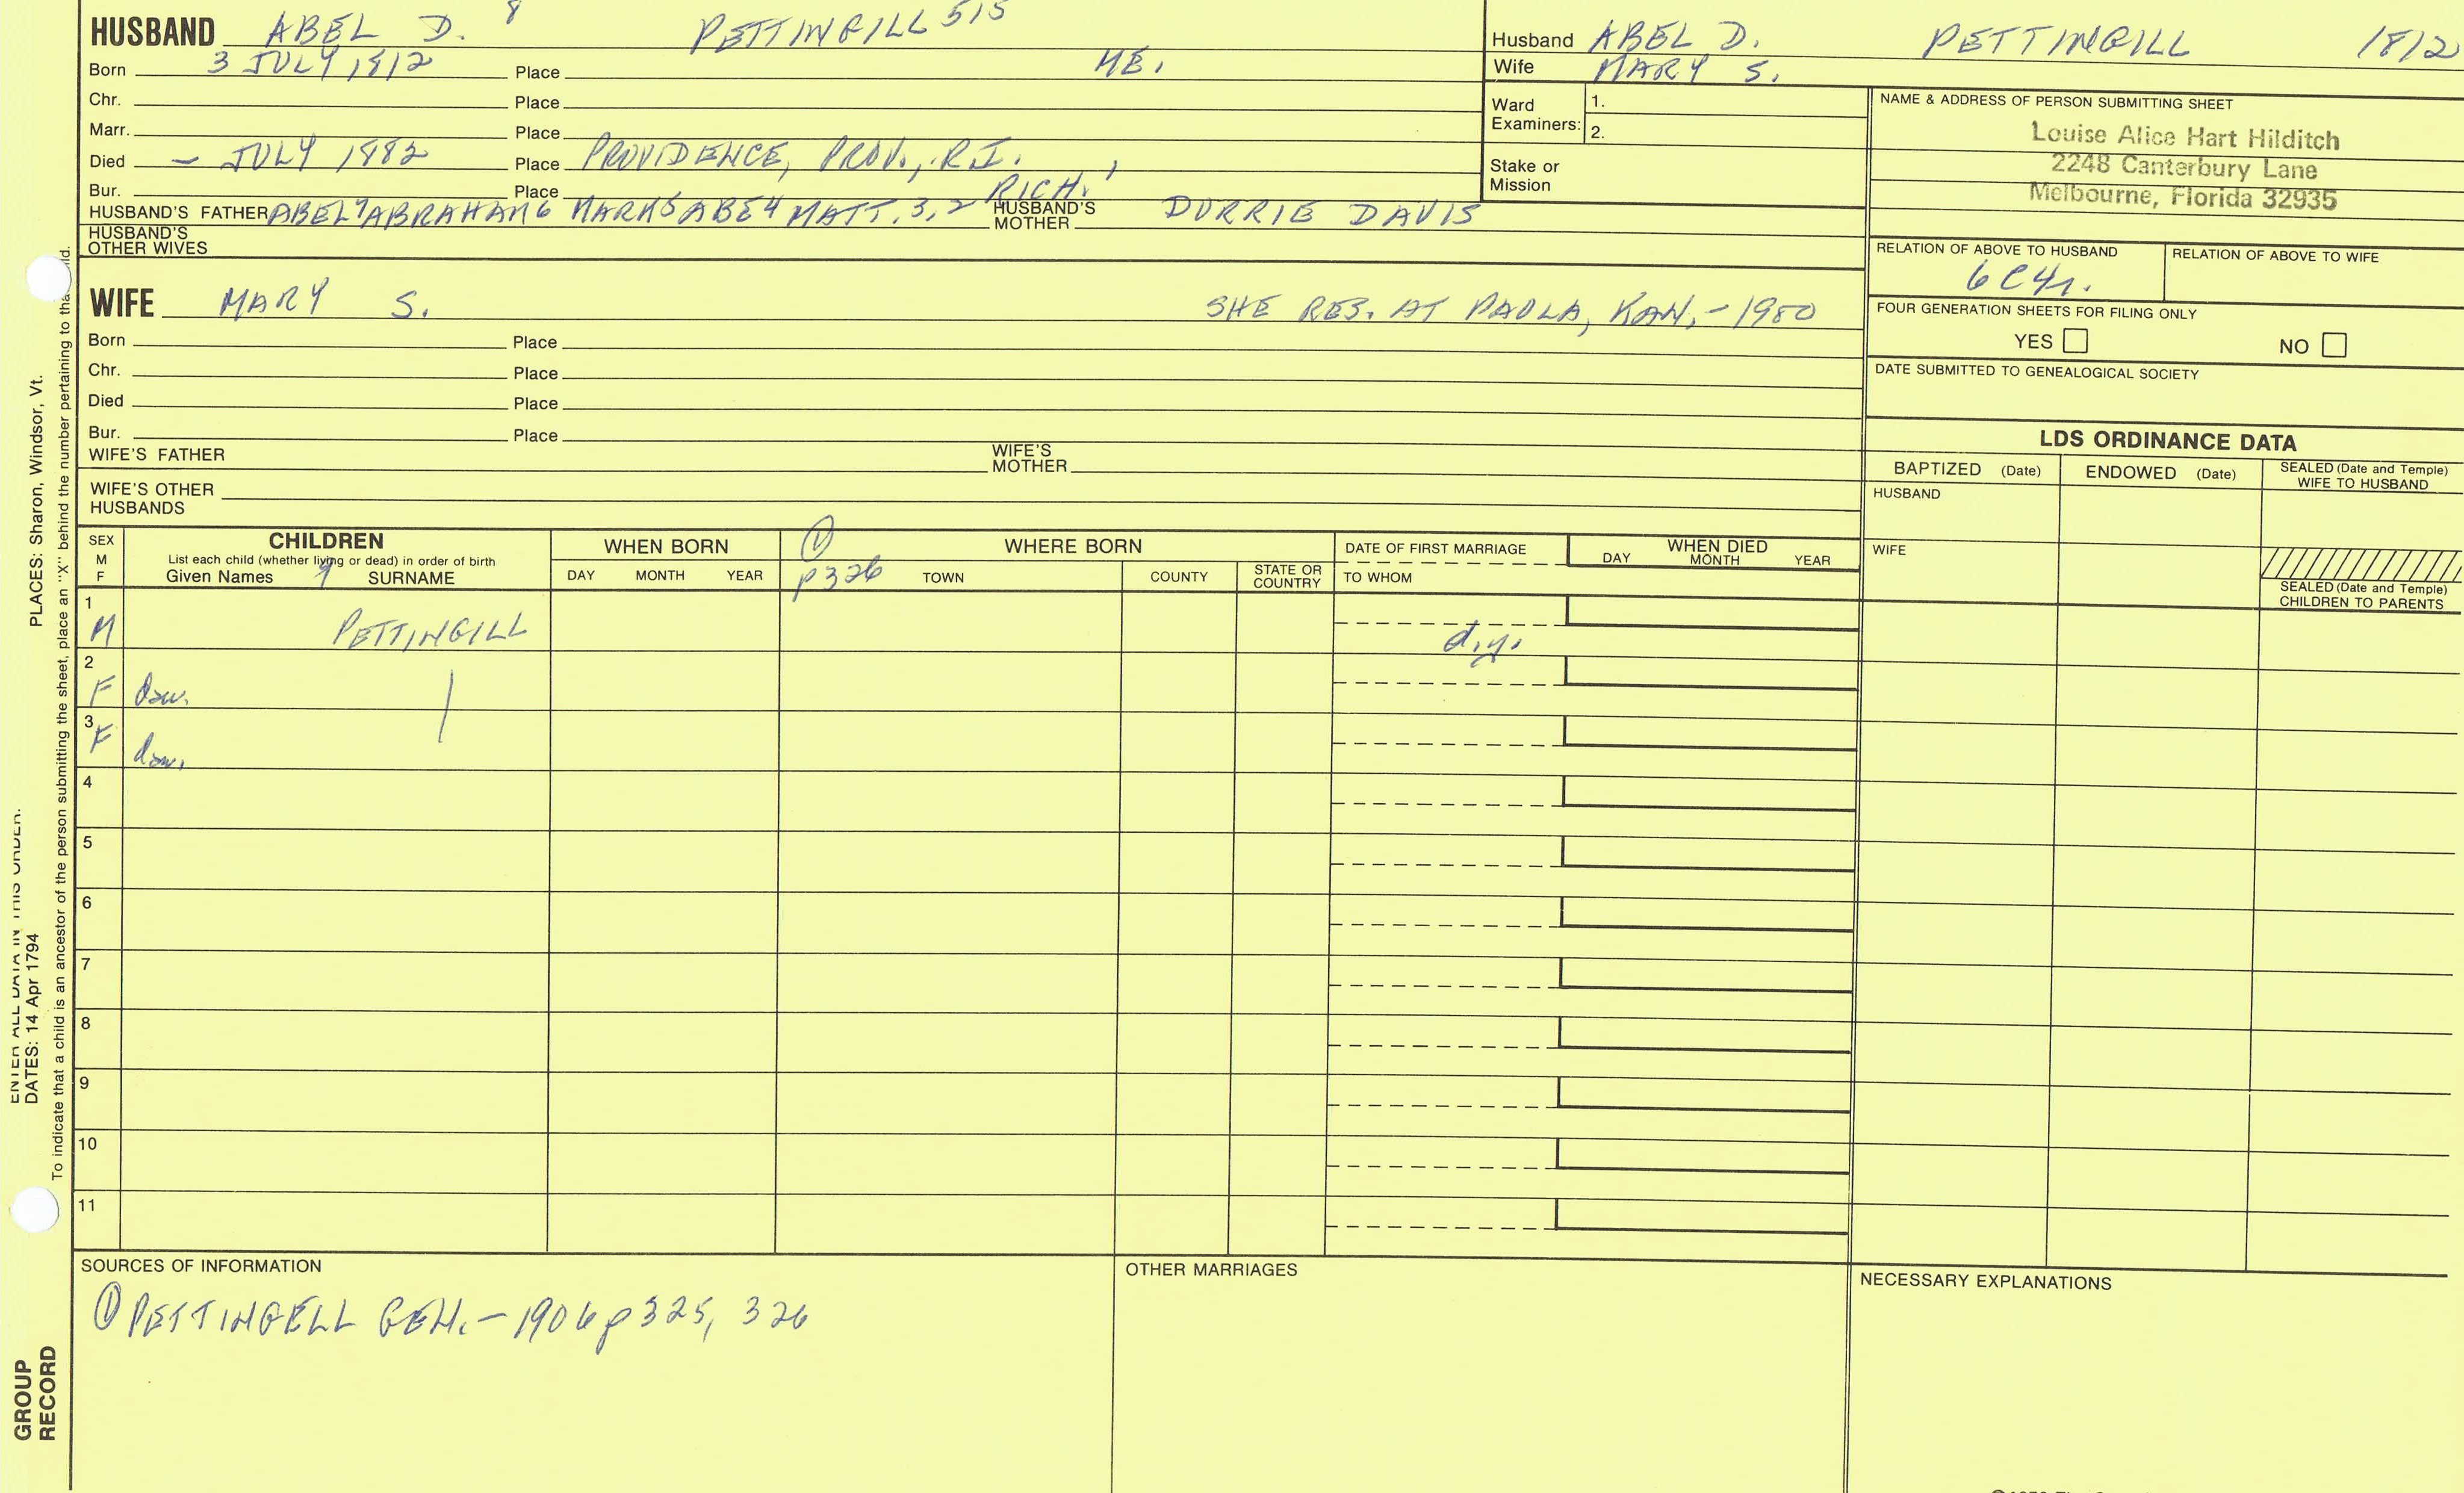 HUSBAND ABEL D. 8 PETTINGILL 515
Born 3 JULY 1812 Place ME.
Chr. Place
Marr. Place
Died - JULY 1882 Place PROVIDENCE, PROV., R.I.
Bur. Place
HUSBAND'S FATHER ABEL7 ABRAHAM6 MARK5 ABE4 MATT.3, RICH.2 HUSBAND'S MOTHER DURRIE DAVIS
HUSBAND'S OTHER WIVES
Husband ABEL D. PETTINGILL 1812
Wife MARY S.
Ward Examiners: 1.
2.
Stake or Mission
NAME & ADDRESS OF PERSON SUBMITTING SHEET
Louise Alice Hart Hilditch
2248 Canterbury Lane
Melbourne, Florida 32935
RELATION OF ABOVE TO HUSBAND RELATION OF ABOVE TO WIFE
6C4r.
FOUR GENERATION SHEETS FOR FILING ONLY
YES NO
DATE SUBMITTED TO GENEALOGICAL SOCIETY
WIFE MARY S. SHE RES. AT PAOLA, KAN, - 1980
Born Place
Chr. Place
Died Place
Bur. Place
WIFE'S FATHER WIFE'S MOTHER
WIFE'S OTHER HUSBANDS
LDS ORDINANCE DATA
BAPTIZED (Date) ENDOWED (Date) SEALED (Date and Temple) WIFE TO HUSBAND
HUSBAND
WIFE
SEALED (Date and Temple) CHILDREN TO PARENTS
SEX M F
CHILDREN
List each child (whether living or dead) in order of birth
Given Names 9 SURNAME
WHEN BORN
DAY MONTH YEAR
① p326
WHERE BORN
TOWN COUNTY STATE OR COUNTRY
DATE OF FIRST MARRIAGE
TO WHOM
WHEN DIED
DAY MONTH YEAR
1 M PETTINGILL d.y.
2 F dau. |
3 F dau.
4
5
6
7
8
9
10
11
SOURCES OF INFORMATION
① PETTINGELL GEN. - 1906 p325, 326
OTHER MARRIAGES
NECESSARY EXPLANATIONS
ENTER ALL DATA IN THIS ORDER:
DATES: 14 Apr 1794 PLACES: Sharon, Windsor, Vt.
To indicate that a child is an ancestor of the person submitting the sheet, place an "X" behind the number pertaining to that child.
GROUP
RECORD